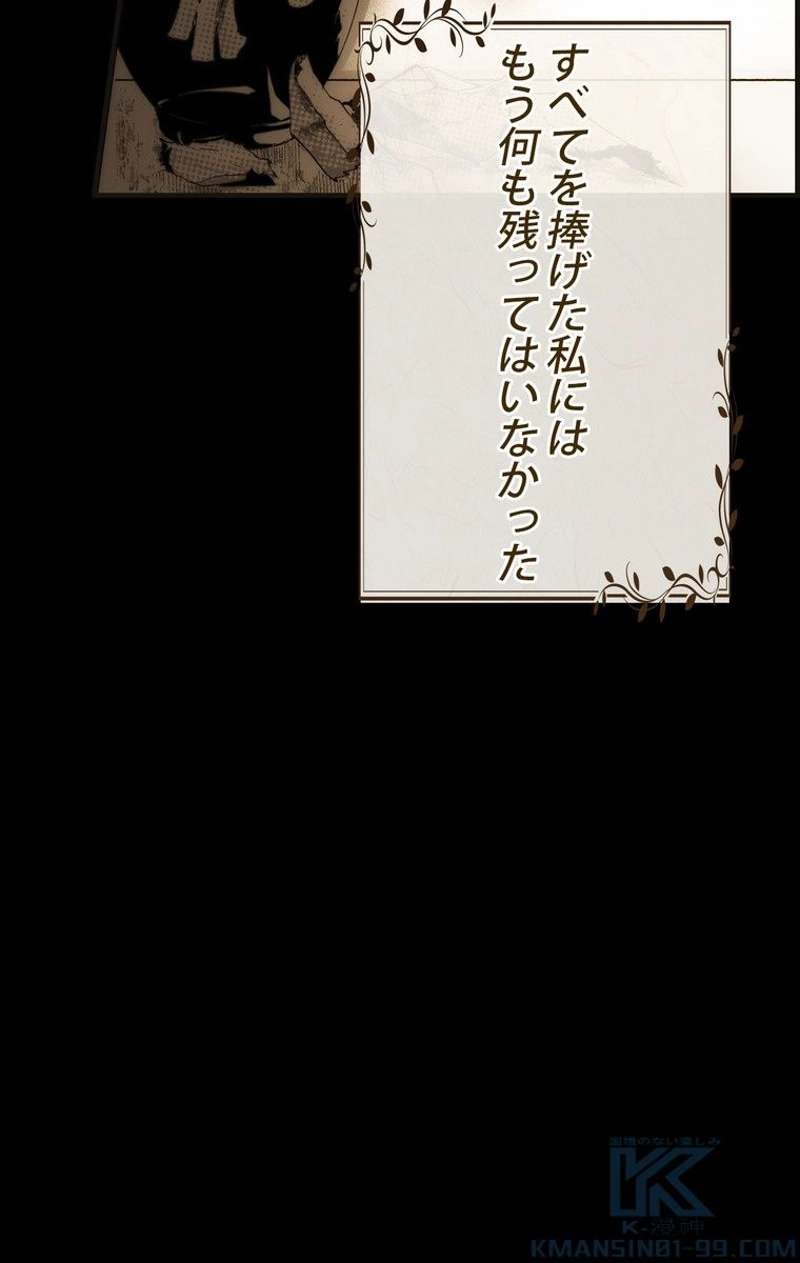 すべてを捧げた私には
もう何も残ってはいなかった
国境のない楽しみ
K-漫神
KMANSIN01-99.COM